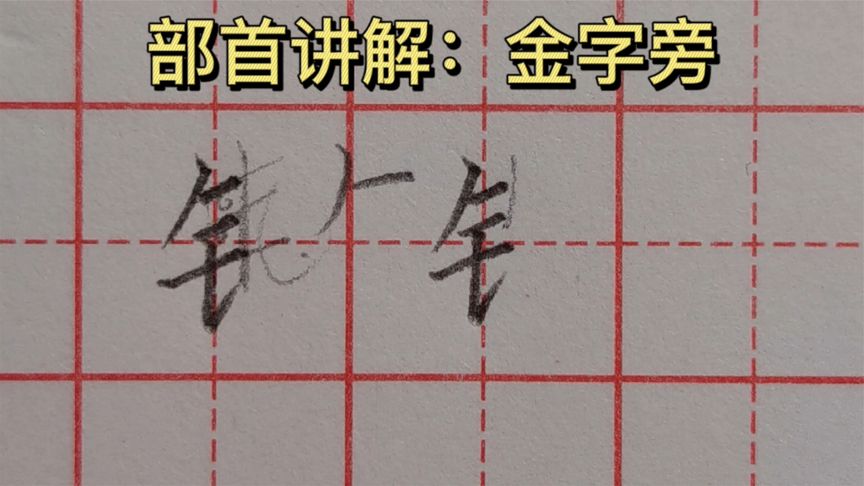 部首讲解：金字旁
钅 𠂉 钅